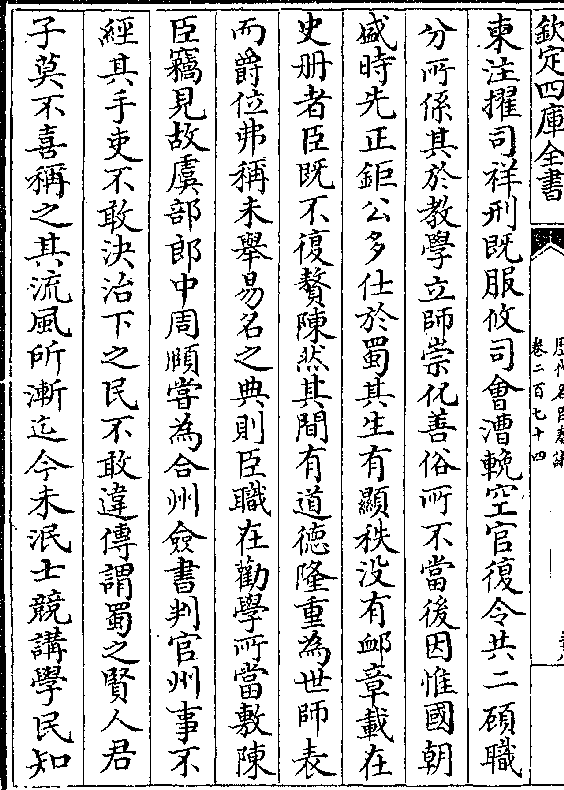 欽定四庫全書
歷代名臣奏議
卷二百七十四
東注擢司祥刑既服攸司會漕輓空官復令共二碩職
分所係其於教學立師崇化善俗所不當後因惟國朝
盛時先正鉅公多仕於蜀其生有顯秩没有䘏章載在
史册者臣既不復贅陳然其間有道德隆重為世師表
而爵位弗稱未舉易名之典則臣職在勸學所當敷陳
臣竊見故虞部郎中周頤嘗為合州僉書判官州事不
經其手吏不敢決治下之民不敢違傳謂蜀之賢人君
子莫不喜稱之其流風所漸迄今未泯士競講學民知